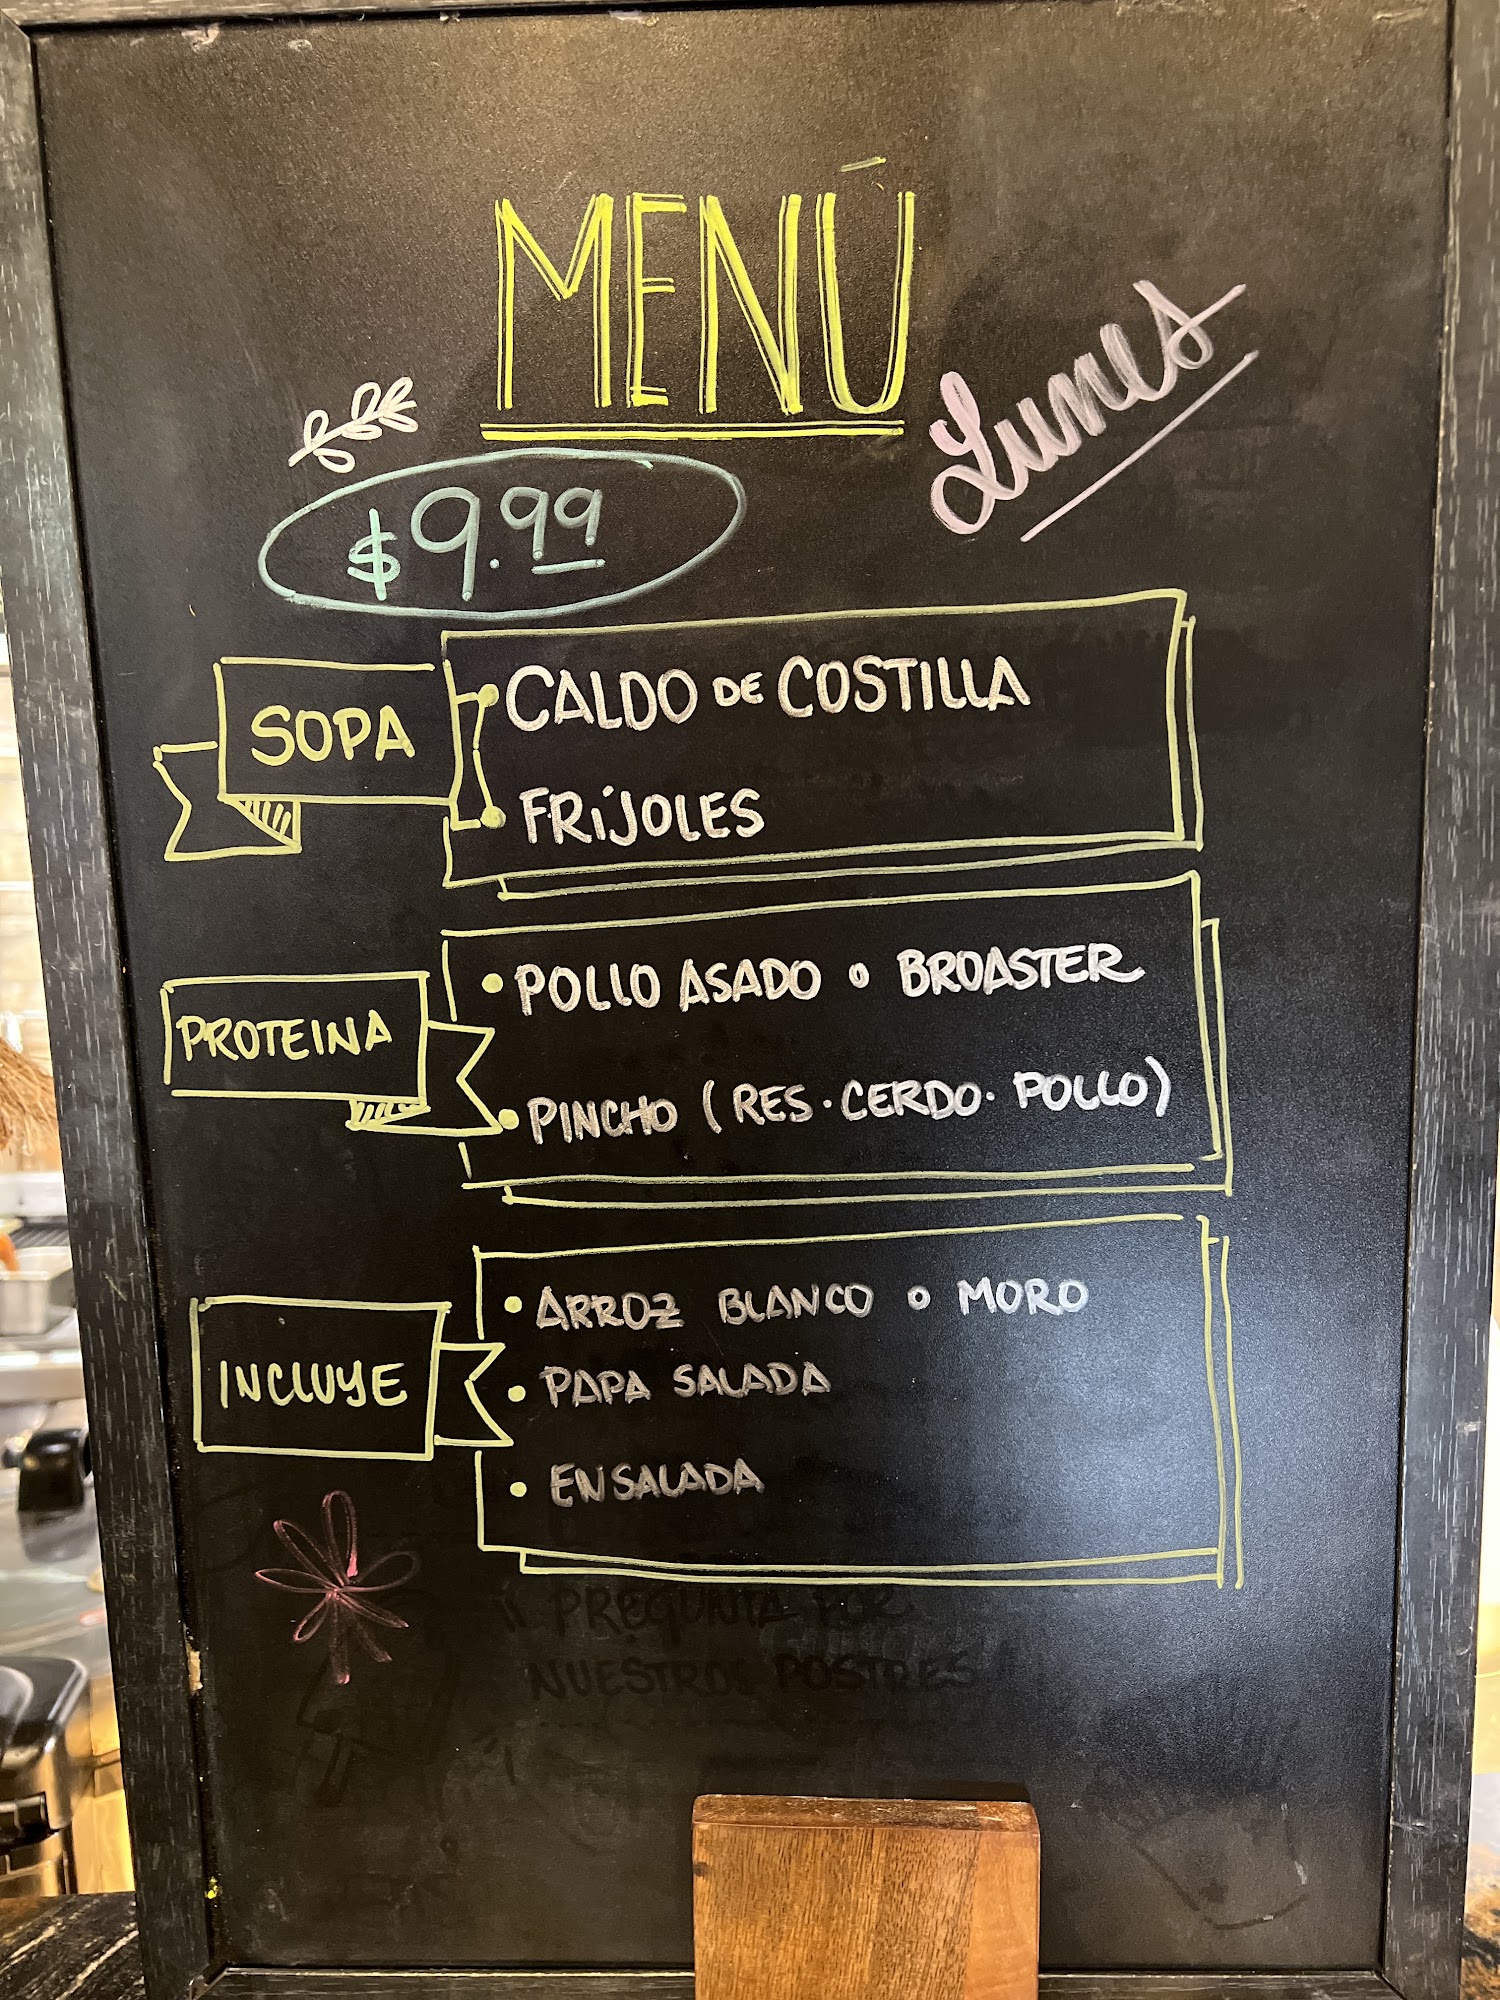 MENÚ
Lunes
$9.99
SOPA
CALDO DE COSTILLA
FRIJOLES
PROTEINA
• POLLO ASADO o BROASTER
• PINCHO (RES · CERDO · POLLO)
INCLUYE
• ARROZ BLANCO o MORO
• PAPA SALADA
• ENSALADA
PREGUNTA POR
NUESTROS POSTRES